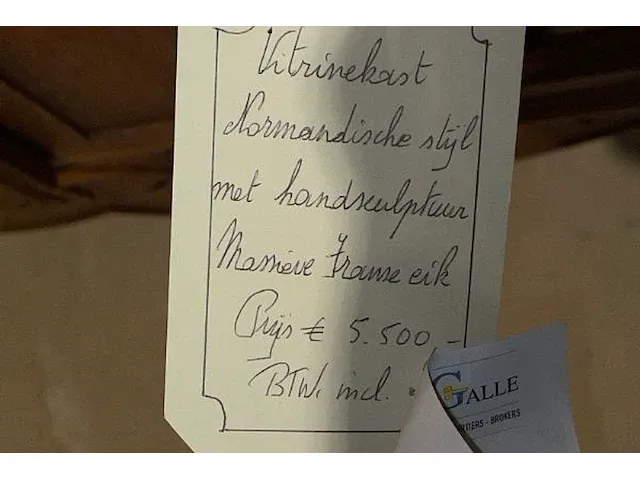 Vitrinekast
Normandische stijl
met handsculptuur
Massieve Franse eik
Prijs € 5.500,-
BTW. incl.
GALLE
- BROKERS